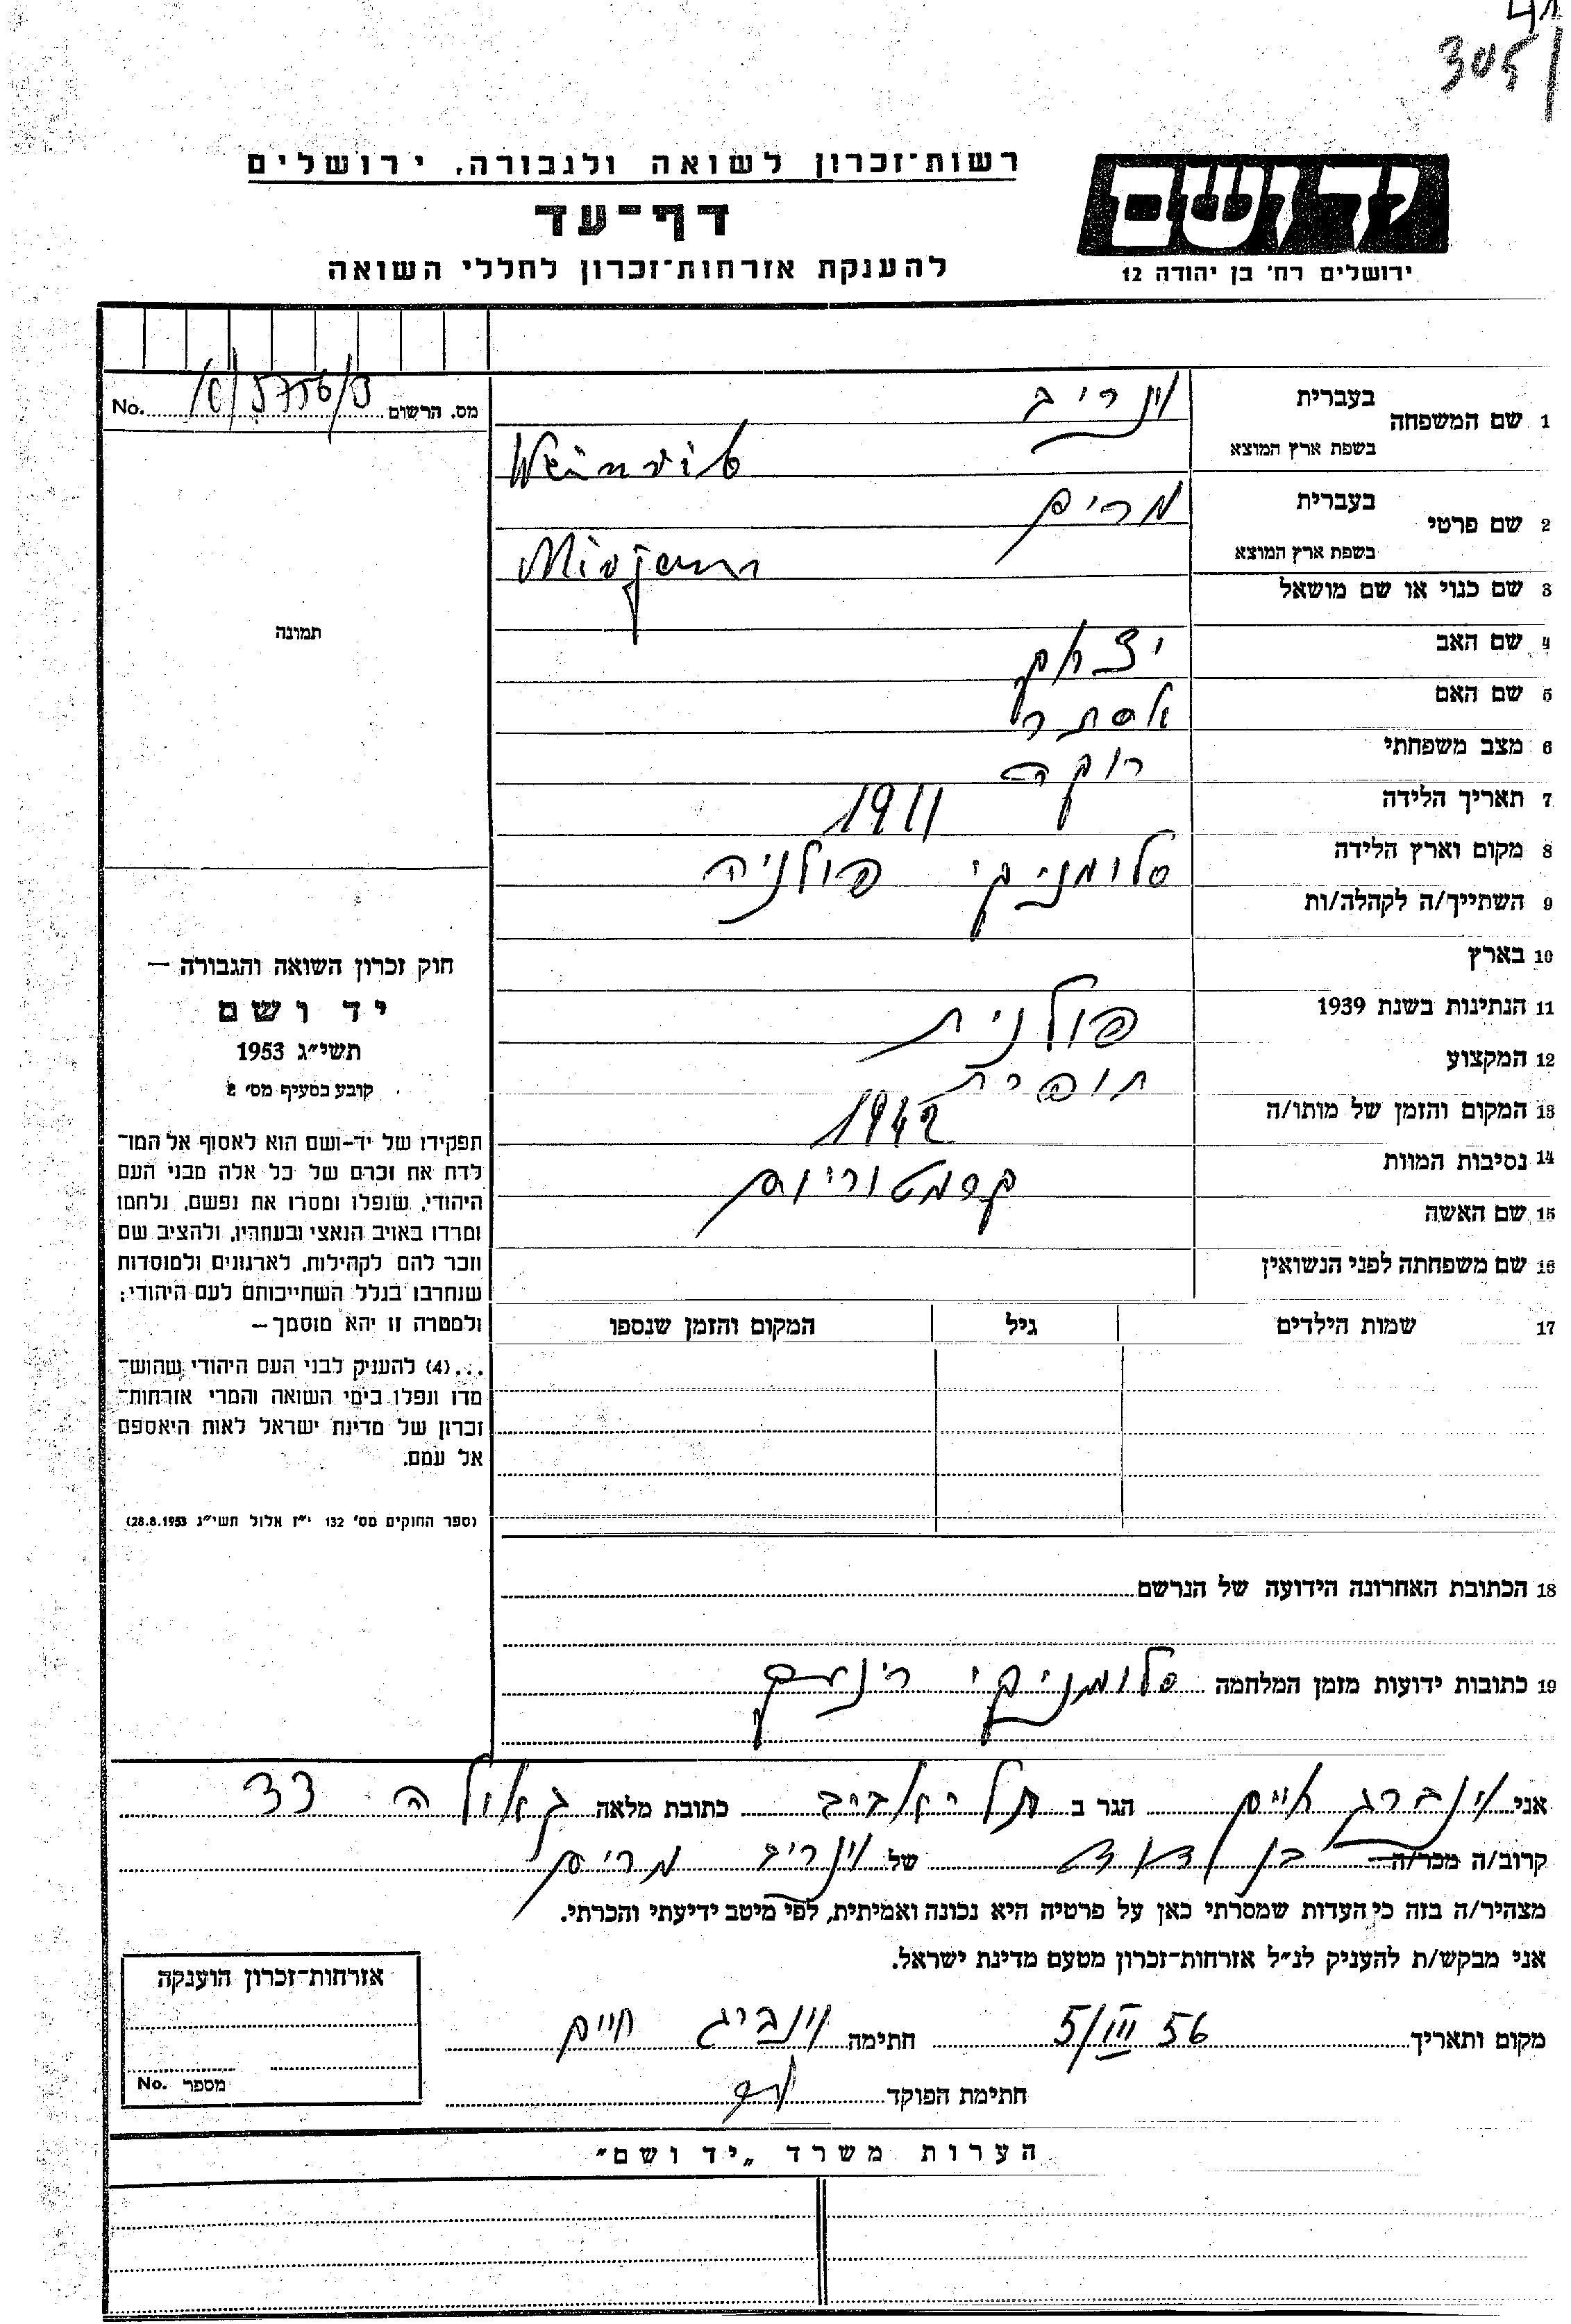 305
רשות־זכרון לשואה ולגבורה, ירושלים
יד ושם
דף־עד
להענקת אזרחות־זכרון לחללי השואה
ירושלים רח' בן יהודה 12
מס. הרשום No.
1 שם המשפחה בעברית וינריב
בשפת ארץ המוצא Weinrib
2 שם פרטי בעברית מרים
בשפת ארץ המוצא Mirjam
3 שם כנוי או שם מושאל
תמונה
4 שם האב יצחק
5 שם האם אסתר
6 מצב משפחתי רוקה
7 תאריך הלידה 1911
8 מקום וארץ הלידה סלומניקי פולניה
9 השתייך/ה לקהלה/ות
10 בארץ
11 הנתינות בשנת 1939 פולנית
12 המקצוע תופרת
13 המקום והזמן של מותו/ה 1942
14 נסיבות המוות קרמטוריום
15 שם האשה
16 שם משפחתה לפני הנשואין
17 שמות הילדים גיל המקום והזמן שנספו
חוק זכרון השואה והגבורה —
יד ושם
תשי"ג 1953
קובע בסעיף מס' 2
תפקידו של יד־ושם הוא לאסוף אל המו־
לדת את זכרם של כל אלה מבני העם
היהודי, שנפלו ומסרו את נפשם, נלחמו
ומרדו באויב הנאצי ובעוזריו, ולהציב שם
וזכר להם לקהילות, לארגונים ולמוסדות
שנחרבו בגלל השתייכותם לעם היהודי;
ולמטרה זו יהא מוסמך —
...(4) להעניק לבני העם היהודי שהוש־
מדו ונפלו בימי השואה והמרי אזרחות־
זכרון של מדינת ישראל לאות היאספם
אל עמם.
(ספר החוקים מס' 132 י"ז אלול תשי"ג 28.8.1953)
18 הכתובת האחרונה הידועה של הנרשם
19 כתובות ידועות מזמן המלחמה סלומניקי רינק
אני וינברג חיים הגר ב תל־אביב כתובת מלאה גאולה 33
קרוב/ה מכר/ה בן דוד של וינריב מרים
מצהיר/ה בזה כי העדות שמסרתי כאן על פרטיה היא נכונה ואמיתית, לפי מיטב ידיעתי והכרתי.
אני מבקש/ת להעניק לנ"ל אזרחות־זכרון מטעם מדינת ישראל.
מקום ותאריך 5/III 56 חתימה וינברג חיים
חתימת הפוקד
אזרחות־זכרון הוענקה
מספר No.
הערות משרד „יד ושם"